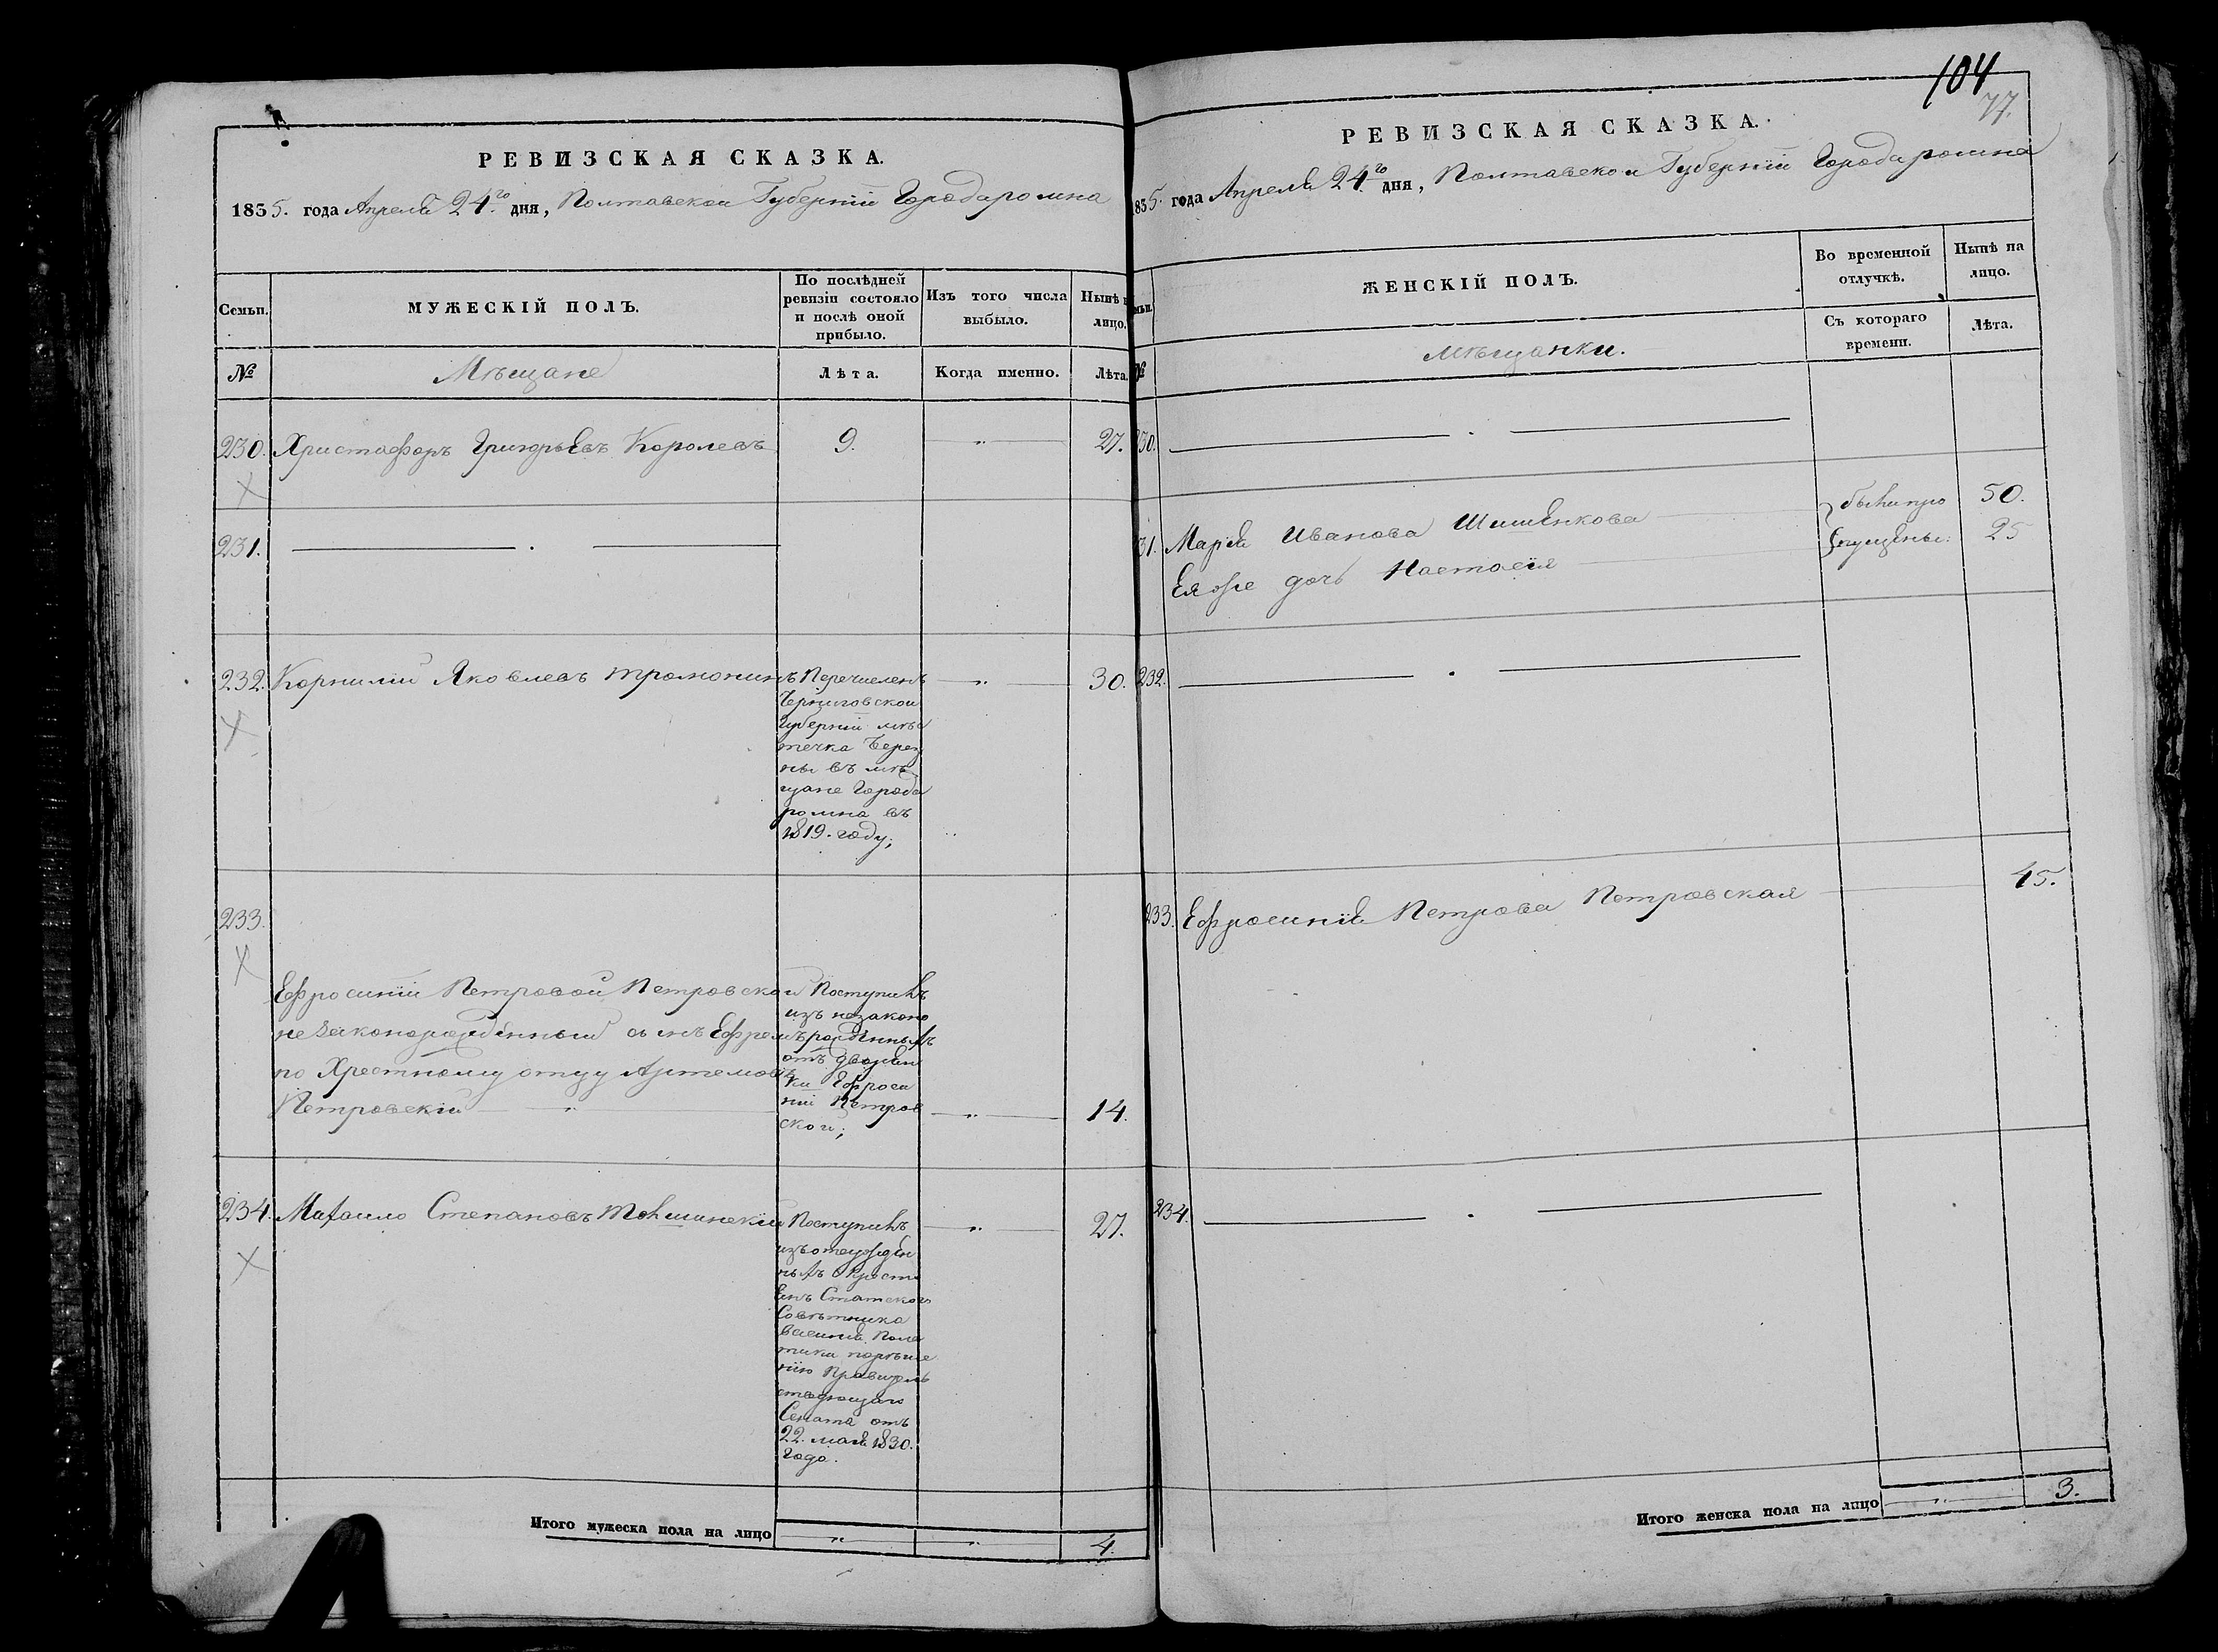 РЕВИЗСКАЯ СКАЗКА.
1835. года Апреля 24.го дня, Полтавской Губерніи Города ромна
Семьи.
МУЖЕСКІЙ ПОЛЪ.
По послѣдней ревизіи состояло и послѣ оной прибыло.
Изъ того числа выбыло.
Нынѣ н лицо.
№
Мѣщане
Лѣта.
Когда именно.
Лѣта.
230. Христофоръ Григорьевъ Королевъ 9. 27.
231.
232. Корнилій Яковлевъ 30.
Перечисленъ
Черниговской
Губерніи мѣс
течка Берез
ны въ мѣ
щане Города
ромна въ
1819. году;
233.
Ефросиніи Петровой Петровской
незаконорожденный сынъ Ефремъ
по Хрестному отцу Артемовъ
Петровскій 14.
Поступилъ
изъ незаконо
рожденныхъ
отъ дворян
ки Ефроси
ніи Петров
ской;
234. Михаило Степановъ 27.
Поступилъ
изъ отсужден
ныхъ Крестя
енъ Статского
Совѣтника
Василия Поле
тики по рѣше
нію Правитель
ствующаго
Сената отъ
22. мая 1830.
года.
Итого мужеска пола на лицо 4.
104
77.
РЕВИЗСКАЯ СКАЗКА.
1835. года Апреля 24.го дня, Полтавской Губерніи Города ромна
ЖЕНСКІЙ ПОЛЪ.
Во временной отлучкѣ.
Нынѣ на лицо.
Съ котораго времени.
Лѣта.
№
Мѣщанки.
230.
31. Марія Иванова Шишенкова были про 50.
Ея же дочь Настасія пущены. 25
232.
233. Ефросинія Петрова Петровская 45.
234.
Итого женска пола на лицо 3.